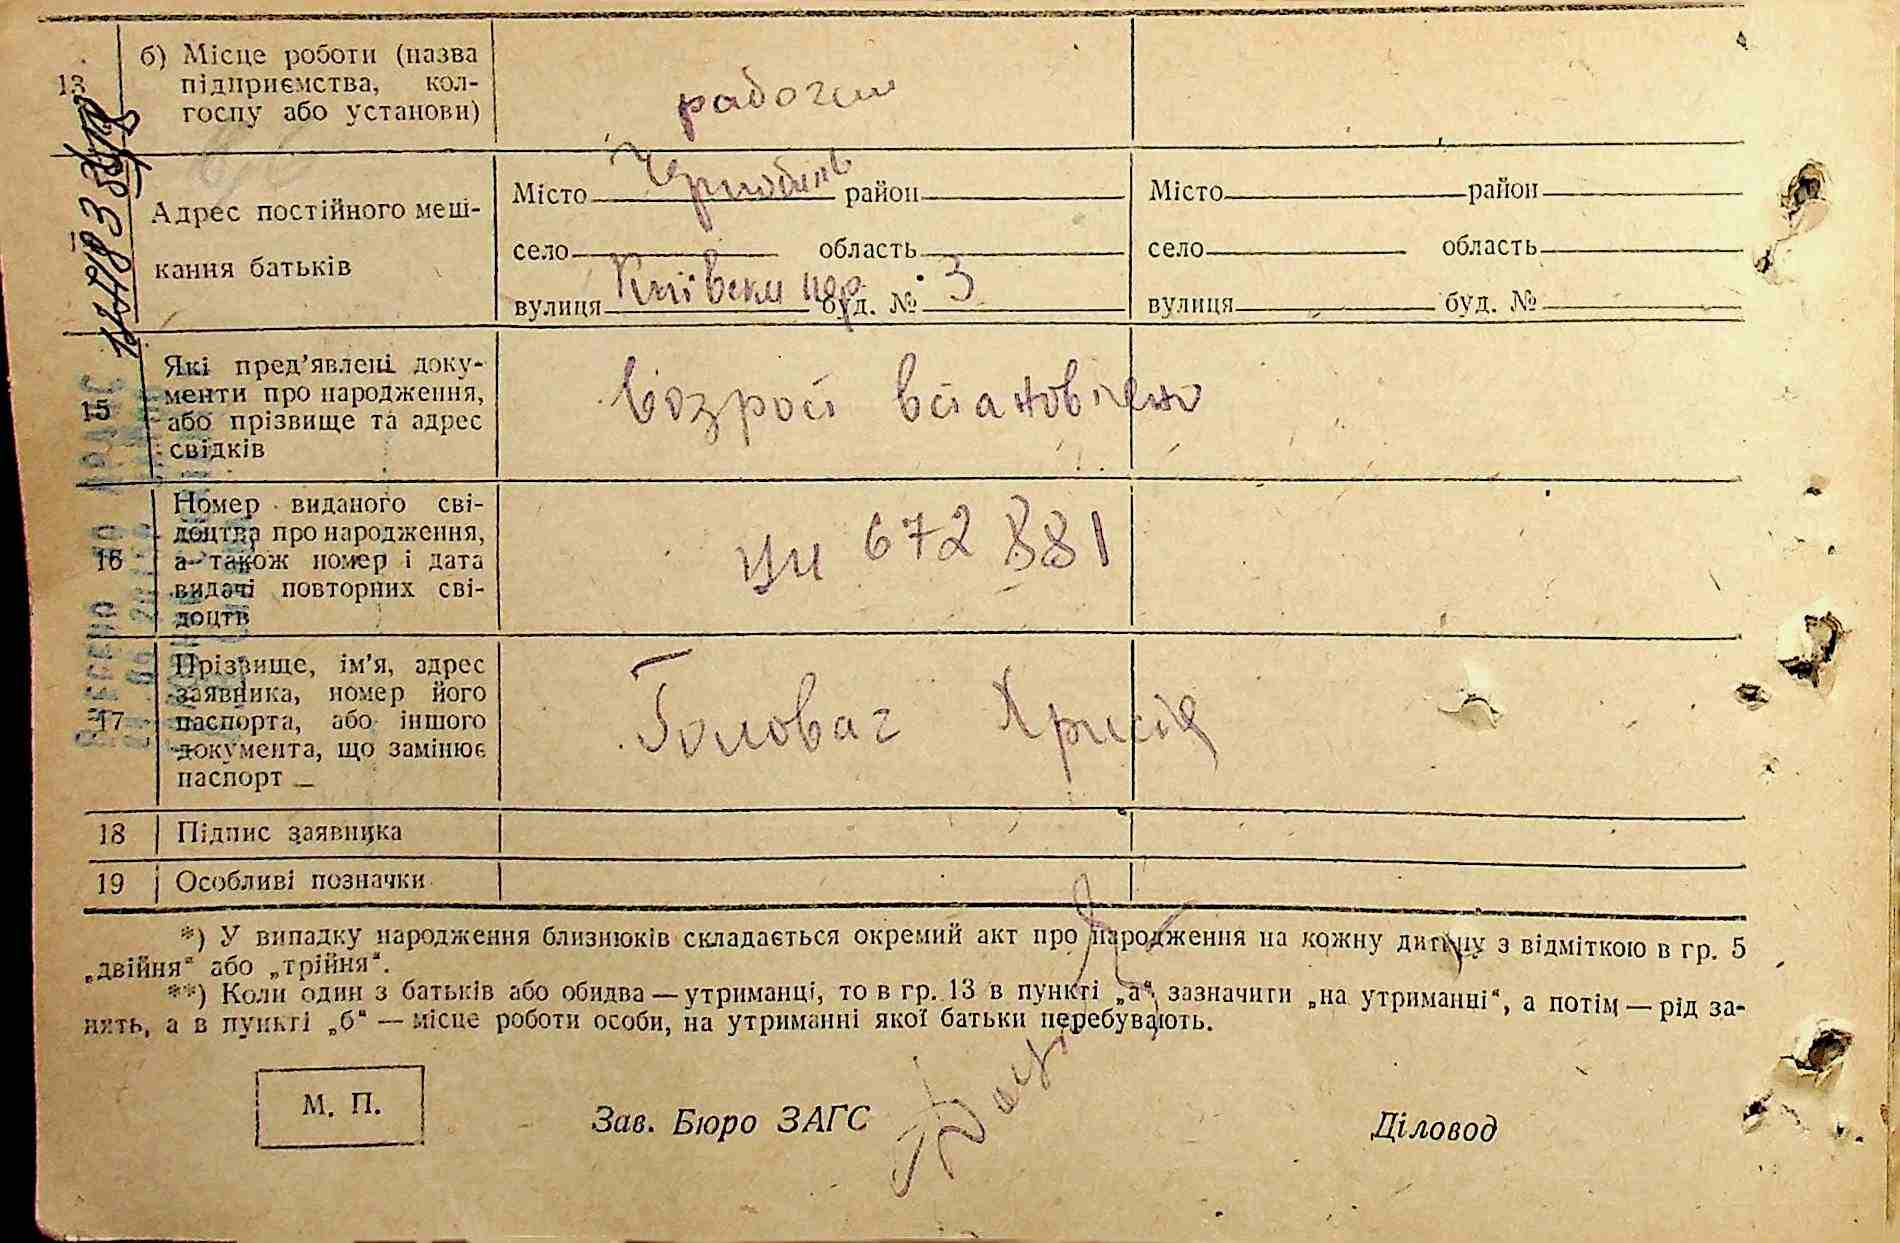 13 б) Місце роботи (назва
підприємства, кол-
госпу або установи)
рабочи
Адрес постійного меш-
кання батьків
Місто Чернобиль район
село область
вулиця Київски пер. буд. № 3
Місто район
село область
вулиця буд. №
15 Які пред’явлені доку-
менти про народження,
або прізвище та адрес
свідків
возрост встановлено
16 Номер виданого сві-
доцтва про народження,
а також номер і дата
видачі повторних сві-
доцтв
УИ 672881
17 Прізвище, ім’я, адрес
заявника, номер його
паспорта, або іншого
документа, що замінює
паспорт
Головач Хрисія
18 Підпис заявника
19 Особливі позначки
*) У випадку народження близнюків складається окремий акт про народження на кожну дитину з відміткою в гр. 5
„двійня“ або „трійня“.
**) Коли один з батьків або обидва — утриманці, то в гр. 13 в пункті „а“ зазначити „на утриманні“, а потім — рід за-
нять, а в пункті „б“ — місце роботи особи, на утриманні якої батьки перебувають.
М. П.
Зав. Бюро ЗАГС
Діловод